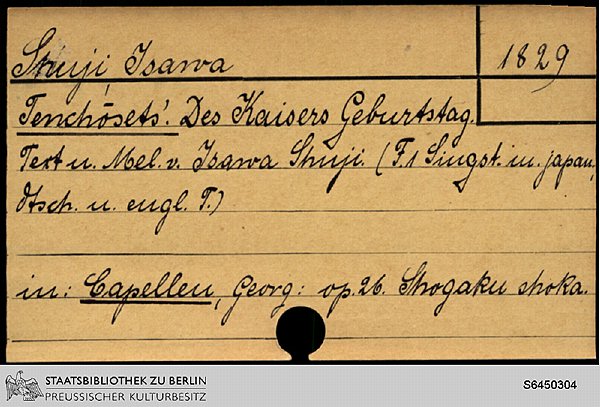 Shuji, Isawa
1829
Tenchōsets'. Des Kaisers Geburtstag.
Text u. Mel. v. Isawa Shuji (F. 1 Singst. in. japan.,
dtsch. u. engl. T.)
in: Capellen, Georg: op. 26. Shogaku shoka.
STAATSBIBLIOTHEK ZU BERLIN
PREUSSISCHER KULTURBESITZ
S6450304